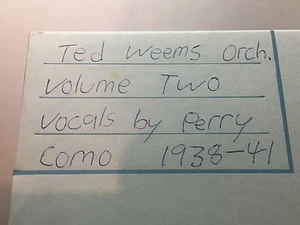 Ted Weems Orch.
Volume Two
Vocals by Perry
Como 1938-41